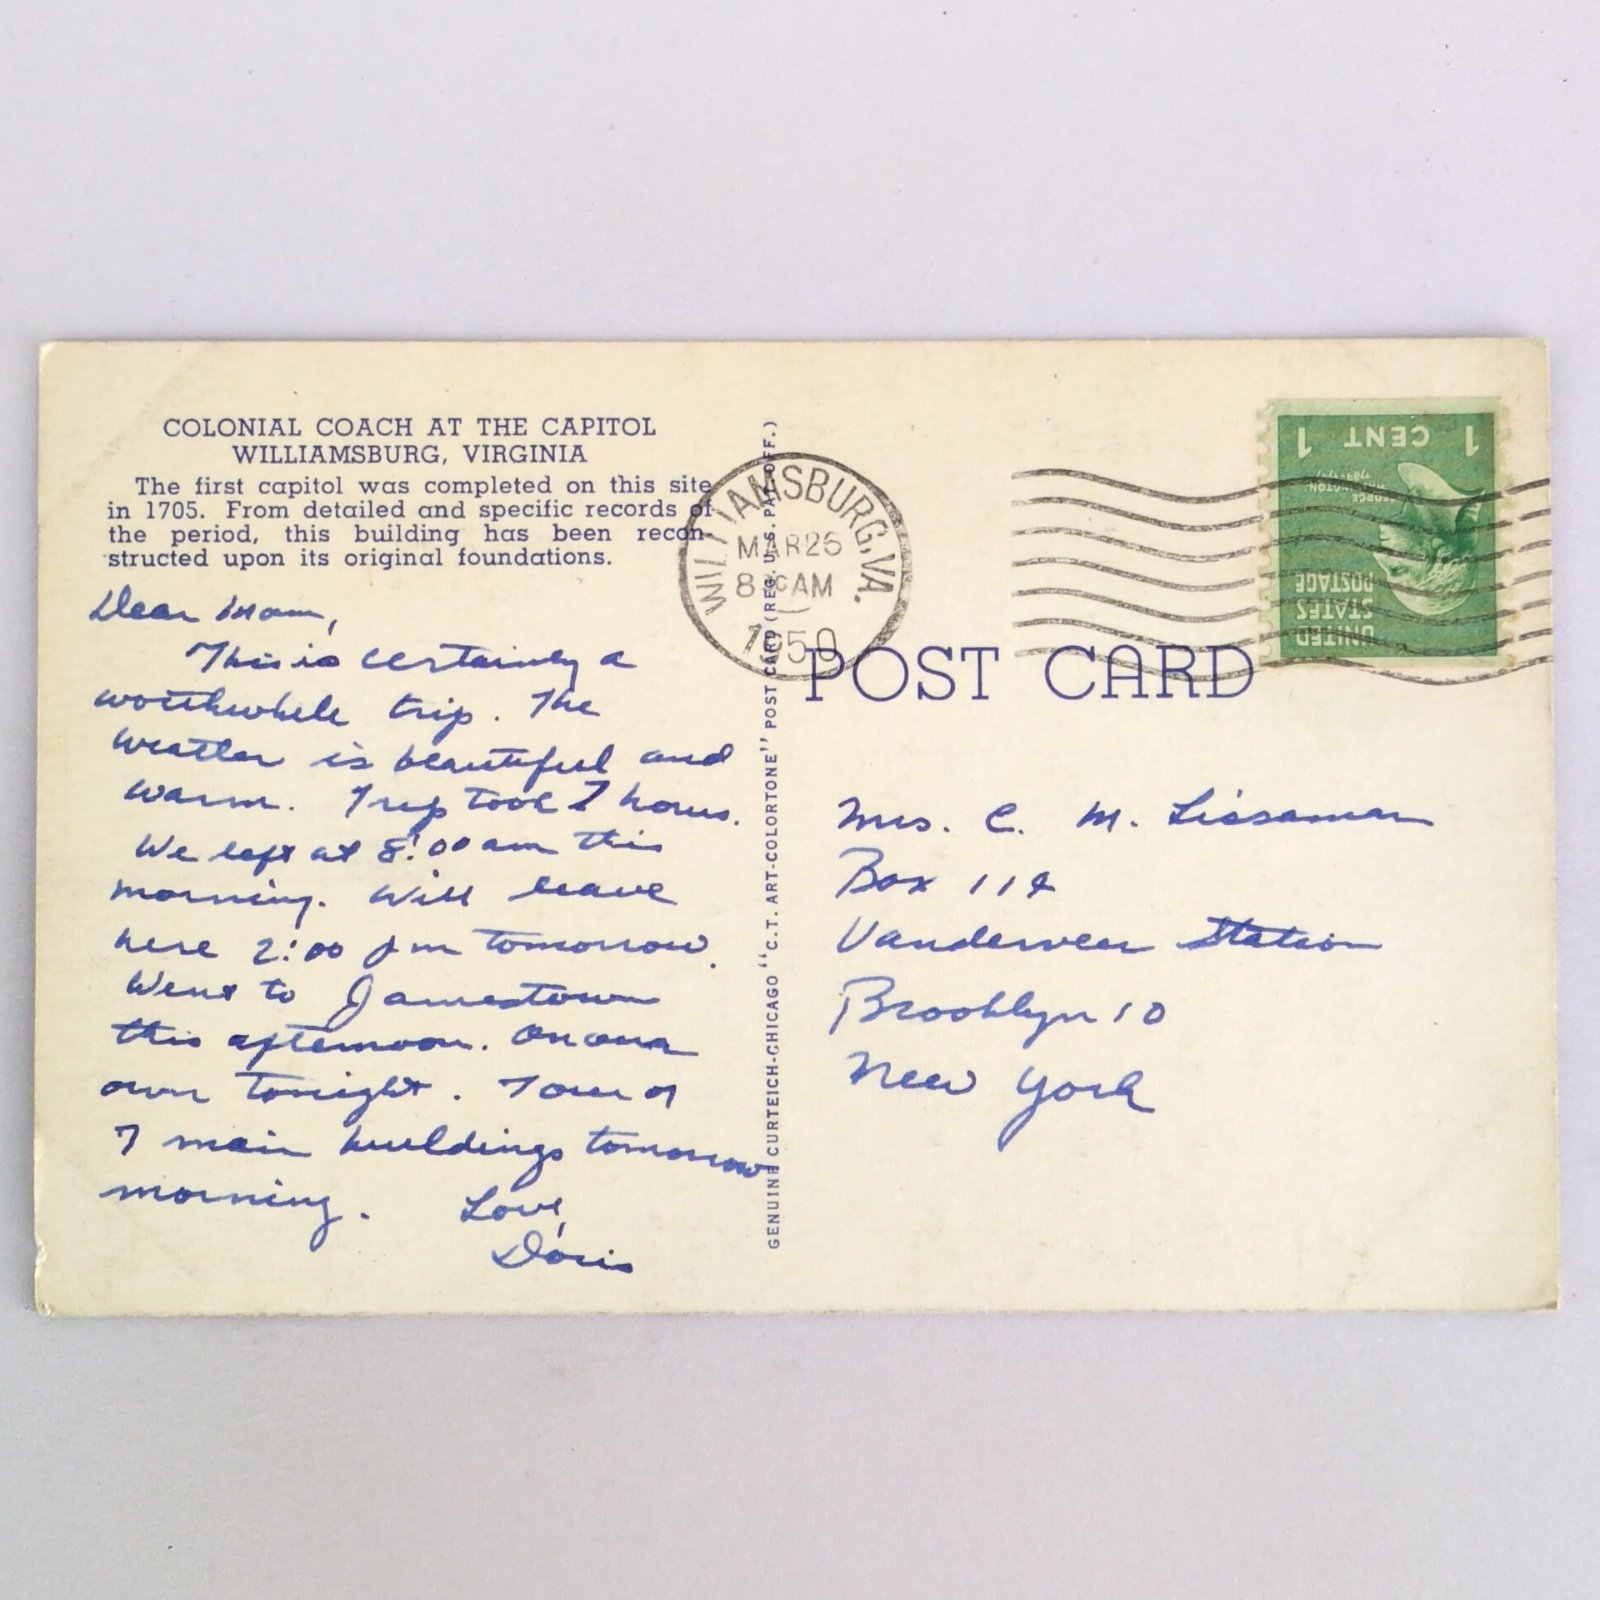 COLONIAL COACH AT THE CAPITOL
WILLIAMSBURG, VIRGINIA
The first capitol was completed on this site
in 1705. From detailed and specific records of
the period, this building has been recon-
structed upon its original foundations.
Dear Mom,
This is certainly a
worthwhile trip. The
weather is beautiful and
warm. Trip took 7 hours.
We left at 8:00 am this
morning. Will leave
here 2:00 pm tomorrow.
Went to Jamestown
this afternoon. On our
own tonight. Tour of
7 main buildings tomorrow
morning. Love,
Doris
GENUINE CURTEICH-CHICAGO "C.T. ART-COLORTONE" POST CARD (REG. U.S. PAT. OFF.)
WILLIAMSBURG, VA.
MAR 26
8 AM
1950
POST CARD
1 CENT 1
GEORGE
WASHINGTON
UNITED
STATES
POSTAGE
Mrs. C. M. Lissaman
Box 112
Vanderveer Station
Brooklyn 10
New York